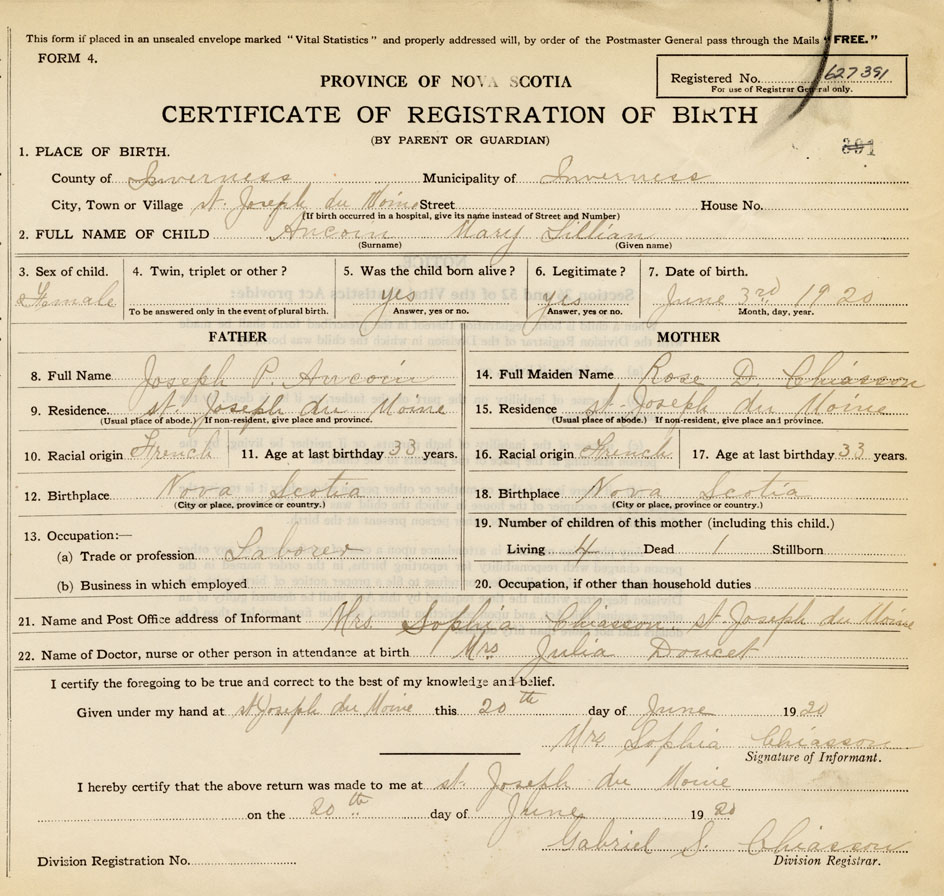 This form if placed in an unsealed envelope marked "Vital Statistics" and properly addressed will, by order of the Postmaster General pass through the Mails "FREE."
FORM 4.
Registered No. 627391
For use of Registrar General only.
PROVINCE OF NOVA SCOTIA
CERTIFICATE OF REGISTRATION OF BIRTH
(BY PARENT OR GUARDIAN)
391
1. PLACE OF BIRTH.
County of Inverness Municipality of Inverness
City, Town or Village st. Joseph du Moine Street House No.
(If birth occurred in a hospital, give its name instead of Street and Number)
2. FULL NAME OF CHILD Aucoin Mary Lillian
(Surname) (Given name)
3. Sex of child. 4. Twin, triplet or other? 5. Was the child born alive? 6. Legitimate? 7. Date of birth.
Female yes yes June 3rd 1920
To be answered only in the event of plural birth. Answer, yes or no. Answer, yes or no. Month, day, year.
FATHER
8. Full Name Joseph P. Aucoin
9. Residence. st. Joseph du Moine
(Usual place of abode.) If non-resident, give place and province.
10. Racial origin French 11. Age at last birthday 33 years.
12. Birthplace Nova Scotia
(City or place, province or country.)
13. Occupation:—
(a) Trade or profession Laborer
(b) Business in which employed
MOTHER
14. Full Maiden Name Rose D. Chiasson
15. Residence st. Joseph du Moine
(Usual place of abode.) If non-resident, give place and province.
16. Racial origin French 17. Age at last birthday 33 years.
18. Birthplace Nova Scotia
(City or place, province or country.)
19. Number of children of this mother (including this child.)
Living 4 Dead 1 Stillborn
20. Occupation, if other than household duties
21. Name and Post Office address of Informant Mrs. Sophia Chiasson. st. Joseph du Moine
22. Name of Doctor, nurse or other person in attendance at birth Mrs Julia Doucet
I certify the foregoing to be true and correct to the best of my knowledge and belief.
Given under my hand at st Joseph du Moine this 20th day of June 1920
Mrs Sophia Chiasson
Signature of Informant.
I hereby certify that the above return was made to me at st. Joseph du Moine
on the 20th day of June 1920
Gabriel S. Chiasson
Division Registration No. Division Registrar.